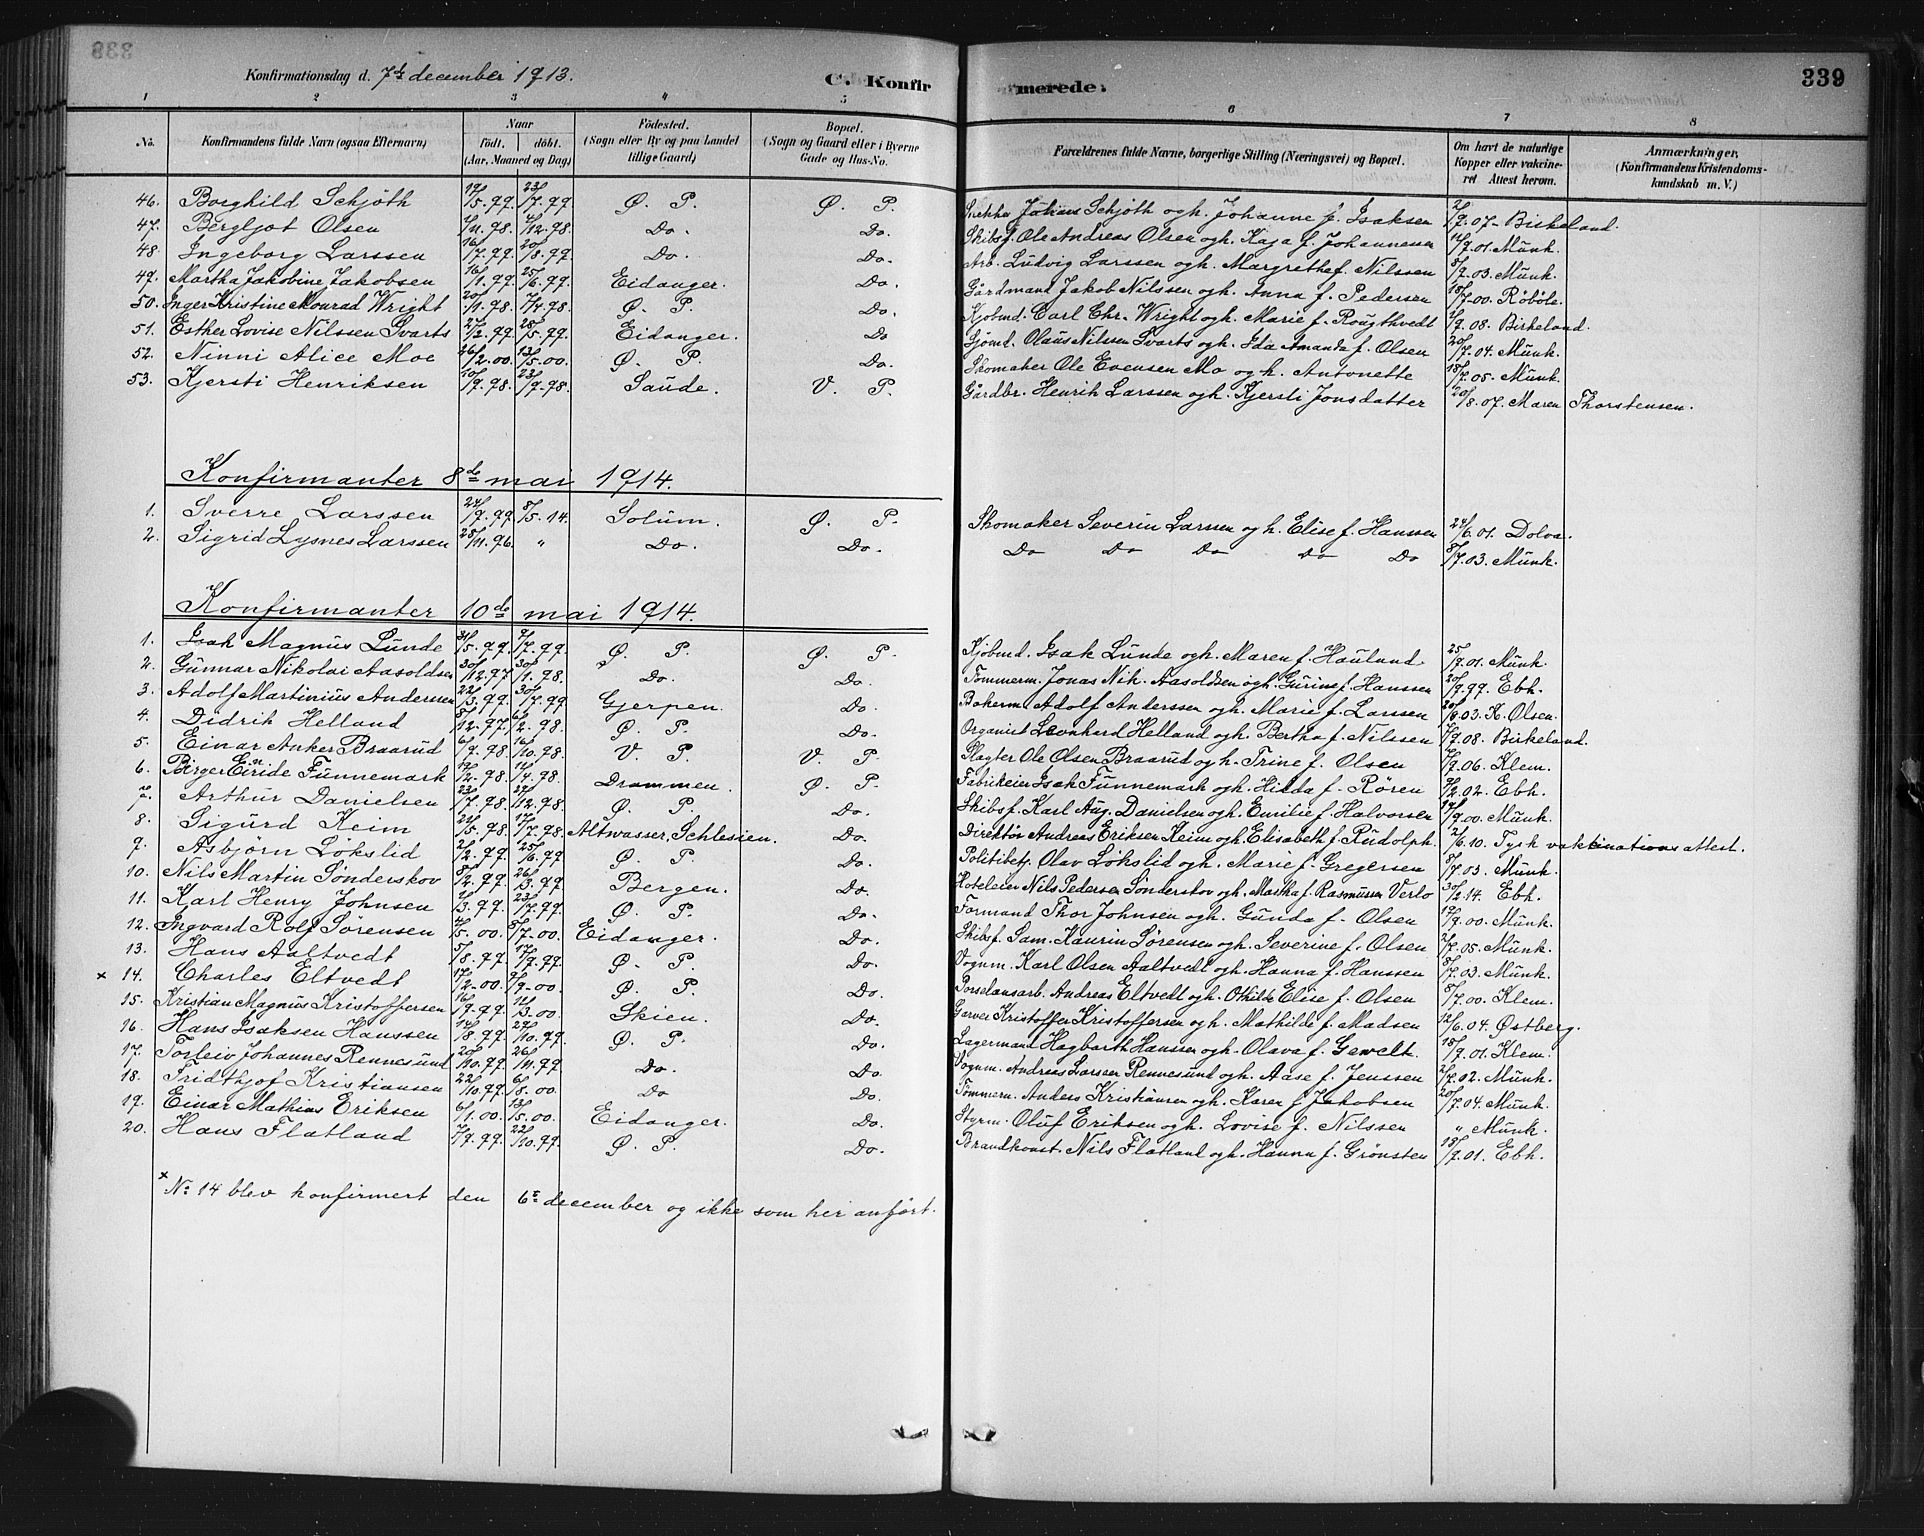 Konfirmationsdag d. 7de december 1913. C. Konfirmerede. 339
1 2 3 4 5 6 7 8
No. Konfirmandens fulde Navn (ogsaa Efternavn) Naar födt. döbt. (Aar, Maaned og Dag) Födested. (Sogn eller By og paa Landet tillige Gaard) Bopæl. (Sogn og Gaard eller i Byerne Gade og Hus-No. Forældrenes fulde Navne, borgerlige Stilling (Næringsvei) og Bopæl. Om havt de naturlige Kopper eller vakcineret Attest herom. Anmærkninger, (Konfirmandens Kristendomskundskab m. V.)
46. Borghild Schjöth 19/5.99. 23/7.99 Ø. P. Ø. P. Johans Schjöth og h. Johanne f. Isaksen 2/9.07. Birkeland.
47. Bergljot Olsen 4/11.98. 4/12.98. Do. Do. Skibsf. Ole Andreas Olsen og h. Kaja f. Johannesen 11/9.01. Munk.
48. Ingeborg Larssen 16/7.99. 20/8.99. Do. Do. Arb. Ludvig Larssen og h. Margrethe f. Nilssen 8/9.03. Munk.
49. Martha Jakobine Jakobsen 16/1.99. 25/6.99. Eidanger. Do. Gårdmand Jakob Nilssen og h. Anna f. Pedersen 18/7.00. Röböle.
50. Inger Kristine Monrad Wright 20/1.98. 7/4.98. Ø. P. Do. Kjöbmd. Carl Chr. Wright og h. Marie f. Rougthvedt 2/9.08. Birkeland.
51. Esther Lovise Nilssen Svarts 27/2.99. 28/5.99. Eidanger. Do Sjömd. Olaus Nilssen Svarts og h. Ida Amanda f. Olsen 20/7.04. Munk.
52. Ninni Alice Moe 26/2.00. 13/5.00. Ø. P. Do. Skomaker Ole Evensen Mo og h. Antonette 18/7.05. Munk.
53. Kjersti Henriksen 10/9.98. 23/9.98. Saude. V. P. Gårdbr. Henrik Larssen og h. Kjersti Jonsdatter 20/8.07. Maren Thorstensen.
Konfirmanter 8de mai 1914.
1. Sverre Larssen 24/9.99. 8/5.14. Solum. Ø. P. Skomaker Severin Larssen og h. Elise f. Hanssen 24/6.01. Dolva.
2. Sigrid Lysnes Larssen 28/11.96. " Do. Do. Do Do Do Do Do 8/7.03. Munk.
Konfirmanter 10de mai 1914.
1. Isak Magnus Lunde 31/5.99. 9/7.99. Ø. P. Ø. P. Kjöbmd. Isak Lunde og h. Maren f. Hauland 25/9.01. Munk.
2. Gunnar Nikolai Aasoldsen 30/12.97 30/1.98. Do. Do. Tömmerm. Jonas Nik. Aasoldsen og h. Gurine f. Hanssen 20/9.99. Ebh.
3. Adolf Martinius Andersen 22/3.99. 30/7.99 Gjerpen. Do. Bokerm. Adolf Anderssen og h. Marie f. Larssen 20/6.03. K. Olsen.
4. Didrik Helland 8/12.97. 6/2.98. Ø. P. Do. Organist Leonherd Helland og h. Bertha f. Nilssen 7/9.08. Birkeland.
5. Einar Anker Braarud 6/9.98 16/10.98 V. P. V. P. Slagter Ole Olsen Braarud og h. Trine f. Olsen 7/9.06. Klem.
6. Birger Einride Funnemark 19/2.98. 14/4.98. Drammen. Ø. P. Fabrikeier Isak Funnemark og h. Hilda f. Rören 9/2.02. Ebh.
7. Arthur Danielsen 23/7.98. 27/12.98. Ø. P. Do. Skibsf. Karl Aug. Danielsen og h. Emilie f. Halvorsen 19/9.00. Munk.
8. Sigurd Keim 21/5.98. 17/7.98. Altwasser, Schlesien. Do. Direktör Andreas Eriksen Keim og h. Elisabeth f. Rudolph. 2/6.10. Tysk vakkinationsattest.
9. Asbjørn Lökslid 2/2.99. 25/6.99 Ø. P. Do. Politibetj. Olav Lökslid og h. Marie f. Gregersen 8/7.03. Munk.
10. Nils Martin Sönderskov 8/2.99. 26/3.99 Bergen. Do. Hoteleier Nils Pedersen Sönderskov og h. Martha f. Rasmussen Verlo 30/12.14. Ebh.
11. Karl Henry Johnsen 2/3.99. 23/7.99. Ø. P. Do. Formand Thor Johnsen og h. Gunda f. Olsen 19/9.00. Munk.
12. Ingvard Rolf Sörensen 4/5.00. 8/7.00. Eidanger. Do. Skibsf. Sam. Kaurin Sörensen og h. Severine f. Olsen 2/7.05. Munk.
13. Hans Aaltvedt 5/8.99. 17/9.99. Ø. P. Do. Vognm. Karl Olsen Aaltvedt og h. Hanna f. Hanssen 8/7.03. Munk.
x 14. Charles Eltvedt 17/2.00. 9/9.00. Ø. P. Do. Porselænsarb. Andreas Eltvedt og h. Othilde Elise f. Olsen 8/7.00. Klem.
15. Kristian Magnus Kristoffersen 16/9.99. 12/3.00. Skien. Do. Garver Kristoffer Kristoffersen og h. Mathilde f. Madsen 12/6.04. Østberg.
16. Hans Isaksen Hanssen 14/8.99. 29/10.99. Ø. P. Do. Lagermand Hagbarth Hanssen og h. Olava f. Gewelt. 18/9.01. Klem.
17. Torleiv Johannes Rennesund 20/10.99. 26/11.99 Do. Do. Vognm. Andreas Larsen Rennesund og h. Aase f. Jenssen 2/7.02. Munk.
18. Fridthjof Kristiansen 22/10.99. 6/5.00. Do Do. Tömmerm. Anders Kristiansen og h. Karen f. Jakobsen 20/7.04. Munk.
19. Einar Mathias Eriksen 6/1.00. 13/5.00. Eidanger. Do. Styrm. Oluf Eriksen og h. Lovise f. Nilssen " Munk.
20. Hans Flatland 7/9.99. 22/10.99. Ø. P. Do. Brandkonst. Nils Flatland og h. Hanna f. Grönsten 18/9.01. Ebh.
x No 14 blev konfirmert den 6te december og ikke som her anfört.